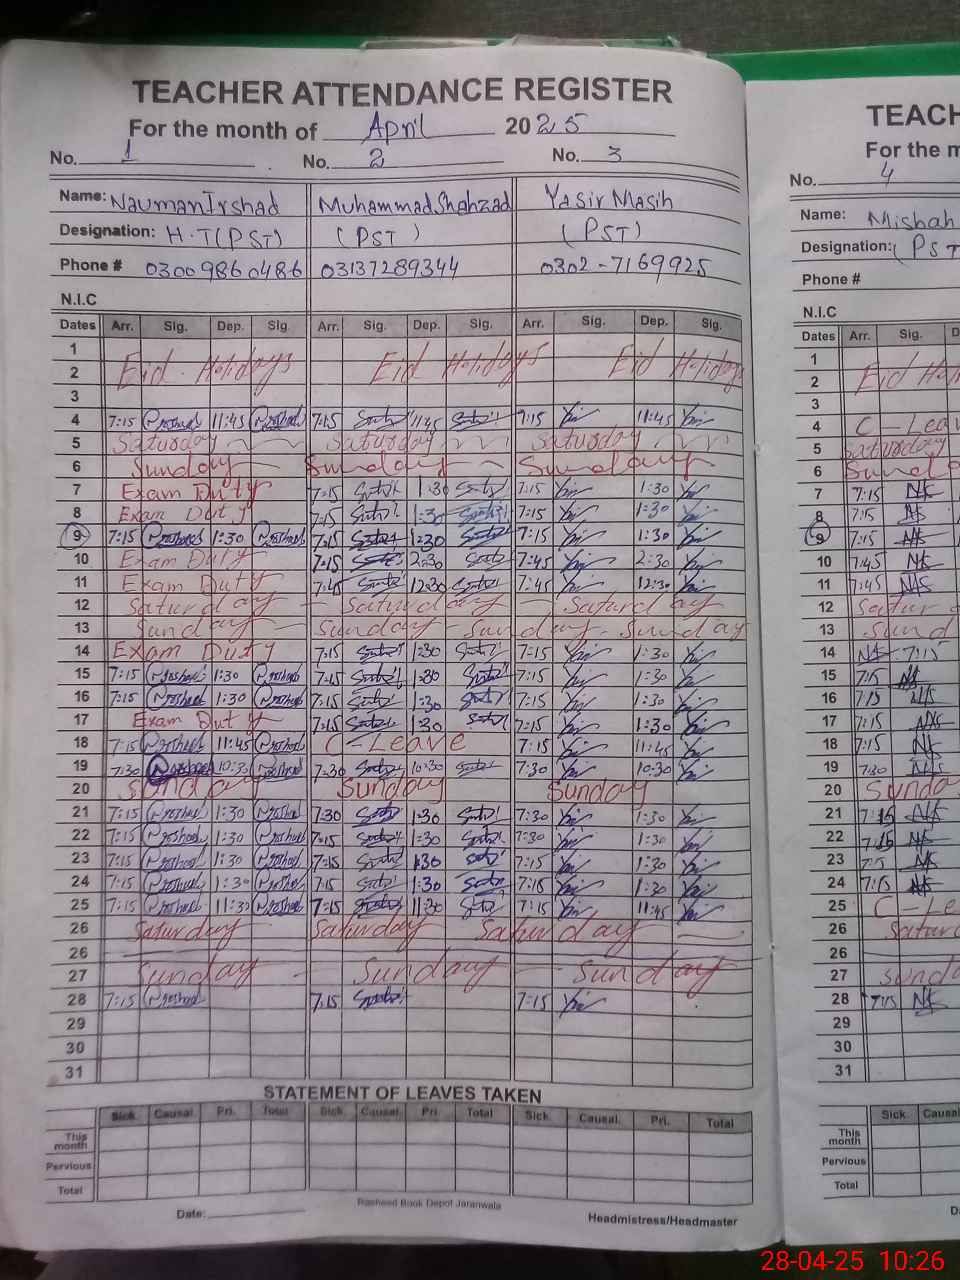 TEACHER ATTENDANCE REGISTER
For the month of April 2025
No. 1 No. 2 No. 3
Name: Nauman Irshad Muhammad Shahzad Yasir Masih
Designation: H.T(PST) (PST) (PST)
Phone # 0300 986 0486 03137289344 0302-7169925
N.I.C
Dates Arr. Sig. Dep. Sig. Arr. Sig. Dep. Sig. Arr. Sig. Dep. Sig.
1
2 Eid Holidays Eid Holidays Eid Holidays
3
4 7:15 11:45 7:15 11:45 7:15 11:45
5 Saturday Saturday Saturday
6 Sunday Sunday Sunday
7 Exam Duty 7:15 1:30 7:15 1:30
8 Exam Duty 7:15 1:30 7:15 1:30
9 7:15 1:30 7:15 1:30 7:15 1:30
10 Exam Duty 7:15 2:30 7:45 2:30
11 Exam Duty 7:45 12:30 7:45 12:30
12 Saturday Saturday Saturday
13 Sunday Sunday Sunday Sunday
14 Exam Duty 7:15 1:30 7:15 1:30
15 7:15 1:30 7:15 1:30 7:15 1:30
16 7:15 1:30 7:15 1:30 7:15 1:30
17 Exam Duty 7:15 1:30 7:15 1:30
18 7:15 11:45 C-Leave 7:15 11:45
19 7:30 10:30 7:30 10:30 7:30 10:30
20 Sunday Sunday Sunday
21 7:15 1:30 7:30 1:30 7:30 1:30
22 7:15 1:30 7:15 1:30 7:30 1:30
23 7:15 1:30 7:15 1:30 7:15 1:30
24 7:15 1:30 7:15 1:30 7:15 1:30
25 7:15 11:30 7:15 11:30 7:15 11:45
26 Saturday Saturday Saturday
26
27 Sunday Sunday Sunday
28 7:15 7:15 7:15
29
30
31
STATEMENT OF LEAVES TAKEN
Sick Causal. Pri. Total Sick. Causal. Pri. Total Sick. Causal. Pri. Total
This month
Pervious
Total
Rasheed Book Depot Jaranwala
Date: Headmistress/Headmaster
TEACH
For the m
No. 4
Name: Mishah
Designation: (PST
Phone #
N.I.C
Dates Arr. Sig.
1
2 Eid Ho
3
4 C-Leav
5 Saturday
6 Sund
7 7:15
8 7:15
9 7:15
10 7:45
11 7:45
12 Satur
13 Sund
14 7:15
15 7:15
16 7:15
17 7:15
18 7:15
19 7:30
20 Sunda
21 7:15
22 7:15
23
24 7:15
25 C-Le
26 Satur
26
27 Sunda
28 7:15
29
30
31
Sick. Causal
This month
Pervious
Total
D
28-04-25 10:26